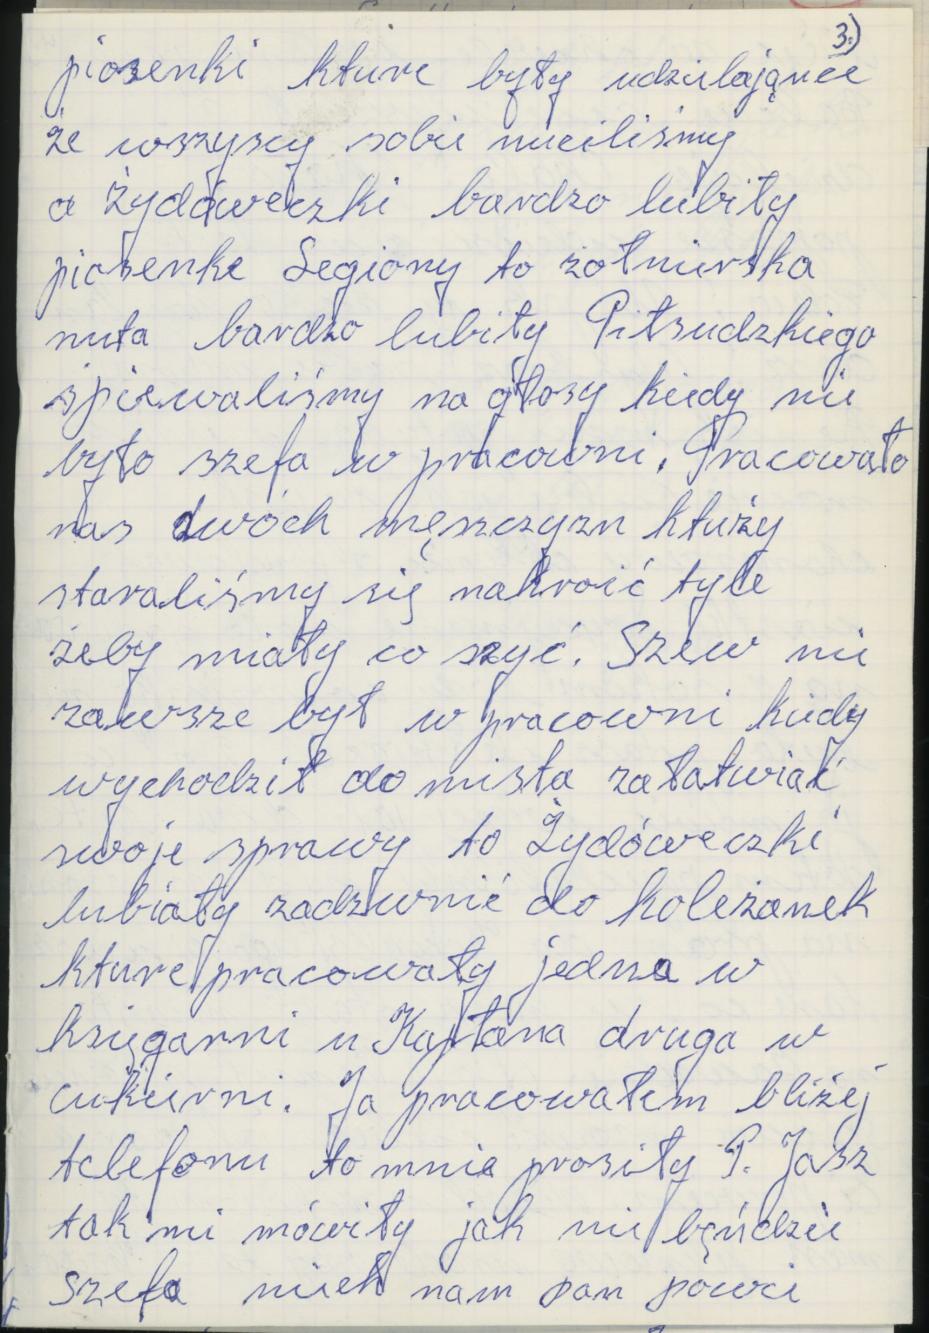 3.)
piosenki kture były udzielającee
że wszyscy sobie nuciliśmy
a Żydóweczki bardzo lubiły
piosenke Legiony to żołnierska
nuta bardzo lubiły Piłsudzkiego
śpiewaliśmy na głosy kiedy nie
było szefa w pracowni. Pracowało
nas dwóch męszczyzn któży
staraliśmy się nakroić tyle
żeby miały co szyć. Szew nie
zawsze był w pracowni kiedy
wychodził do miasta załatwiać
swoje sprawy to Żydóweczki
lubiały zadzwnić do koleżanek
kture pracowały jedna w
księgarni u Kajtana druga w
cukierni. Ja pracowałem bliżej
telefonu to mnie prosiły P. Jasz
tak mi mówiły jak nie bęńdzie
szefa niech nam pan powci